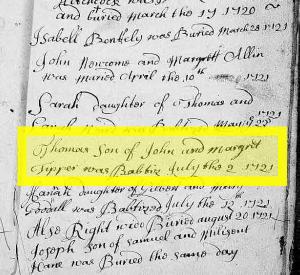 and buried March the 17 1720
Isabell Benkely was Buried March 28 1721
John Newcome and Margrett Allin
was maried April the 10th 1721
Sarah daughter of Thomas and
was May 1721
Thomas Son of John and Margret
Tipper was Babtiz July the 9 1721
Hanah daughter of Gilbert and Mery
Goodall was Babtized July the 12th 1721
Alse Right wido Buried august 20 1721
Joseph son of Samuel and Milisent
Hane was Buried the same day